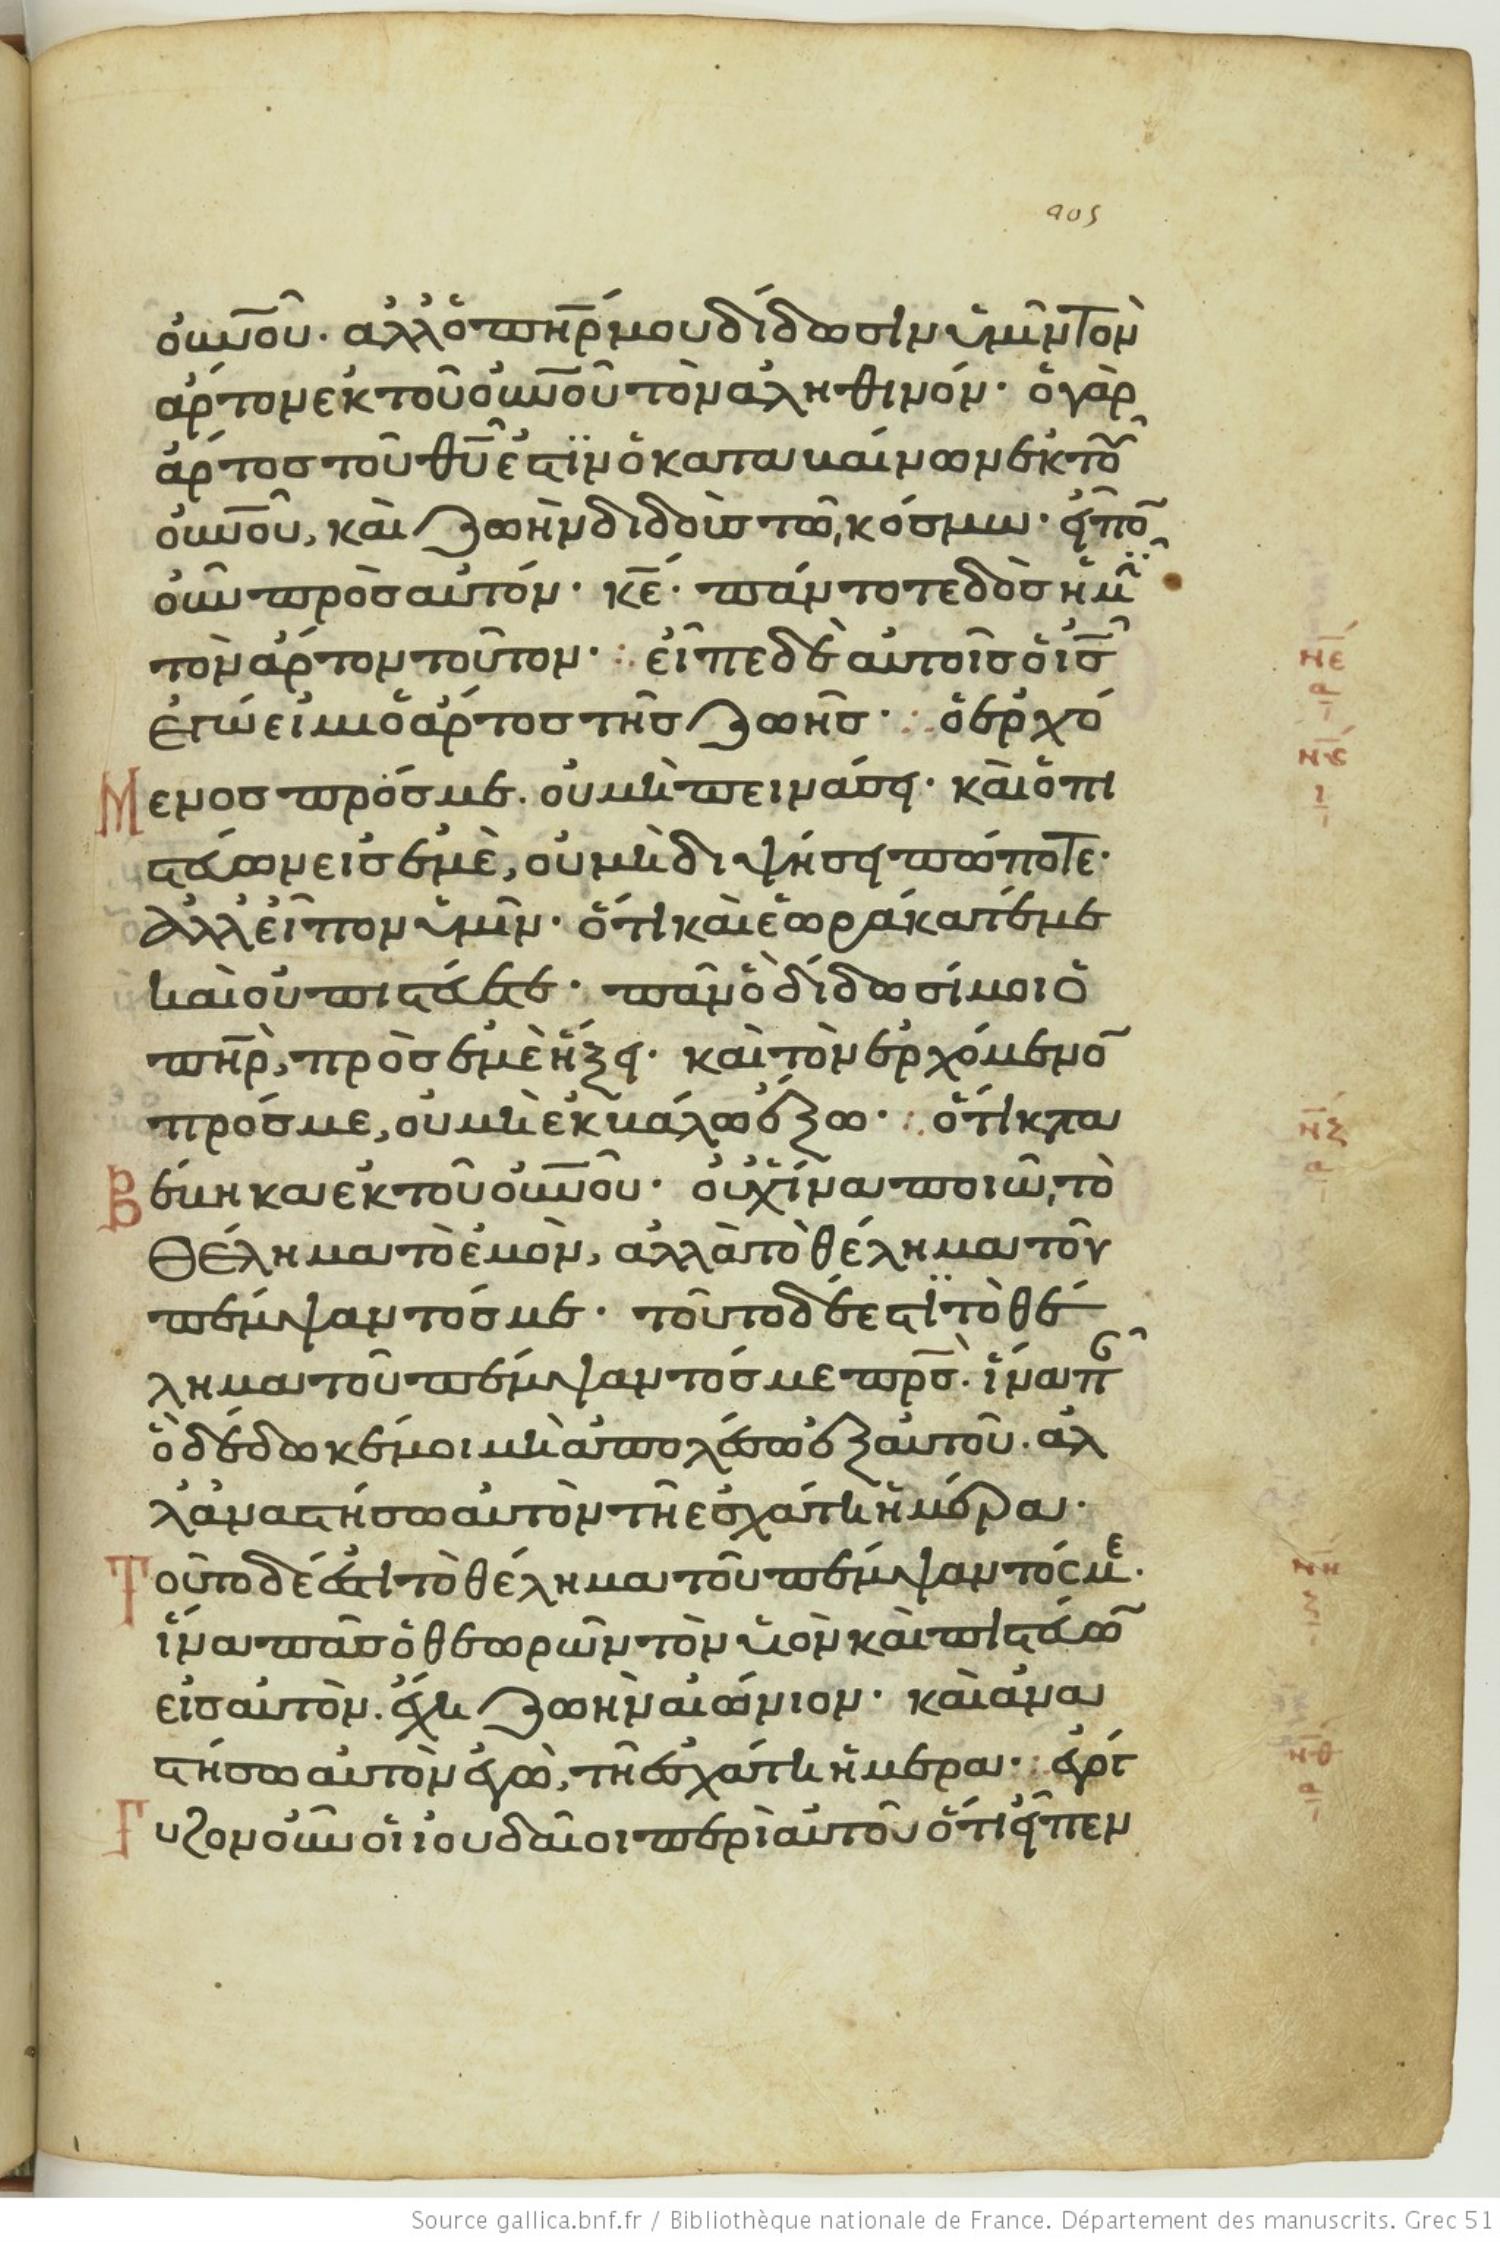 905
οὐνοῦ· ἀλλ' ὁ πηρ μου δίδωσιν ὑμῖν τὸν
ἄρτον ἐκ τοῦ οὐνοῦ τὸν ἀληθινόν· ὁ γὰρ
ἄρτος τοῦ θυ ἐστιν ὁ καταβαίνων ἐκ τοῦ
οὐνοῦ, καὶ ζωὴν διδοὺς τῶ κόσμω· εἶπον
οὖν πρὸς αὐτόν· κε· πάντοτε δὸς ἡμῖν
τὸν ἄρτον τοῦτον· εἶπε δὲ αὐτοῖς ὁ ις
ἐγώ εἰμι ὁ ἄρτος τῆς ζωῆς· ὁ ἐρχό
μενος πρός με. οὐ μὴ πεινάσει· καὶ ὁ πι
στεύων εἰς ἐμὲ, οὐ μὴ διψήσει πώποτε·
ἀλλ' εἶπον ὑμῖν· ὅτι καὶ ἑωράκατέ με
καὶ οὐ πιστεύετε· πᾶν ὃ δίδωσί μοι ὁ
πηρ, πρὸς ἐμὲ ἥξει· καὶ τὸν ἐρχόμενον
πρός με, οὐ μὴ ἐκβάλω ἔξω· ὅτι κατα
βέβηκα ἐκ τοῦ οὐνοῦ· οὐχ ἵνα ποιῶ τὸ
θέλημα τὸ ἐμὸν, ἀλλὰ τὸ θέλημα τοῦ
πέμψαντός με· τοῦτο δέ ἐστι τὸ θέ
λημα τοῦ πέμψαντός με πρς· ἵνα πᾶν
ὃ δέδωκέ μοι μὴ ἀπολέσω ἐξ αὐτοῦ· ἀλ
λὰ ἀναστήσω αὐτὸν τῆ ἐσχάτη ἡμέρα·
Τοῦτο δέ ἐστι τὸ θέλημα τοῦ πέμψαντός με·
ἵνα πᾶς ὁ θεωρῶν τὸν υἱὸν καὶ πιστεύων
εἰς αὐτὸν. ἔχη ζωὴν αἰώνιον· καὶ ἀνα
στήσω αὐτὸν ἐγὼ, τῆ ἐσχάτη ἡμέρα· ἐγόγ
γυζον οὖν οἱ ἰουδαῖοι περὶ αὐτοῦ ὅτι εἶπεν
νε
α
νϛ
ι
νζ
α
νη
ι
νθ
α
Source gallica.bnf.fr / Bibliothèque nationale de France. Département des manuscrits. Grec 51